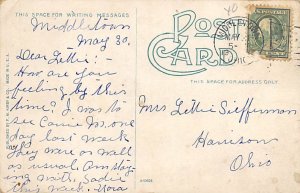 THIS SPACE FOR WRITING MESSAGES
Middletown
May 30.
Dear Lettie:-
How are you
feeling by this
time? I was to
see Carrie M. one
day last week
They were as well
as usual. Am stay
ing with Sadie
this week. Nora
POST
CARD
THIS SPACE FOR ADDRESS ONLY.
Mrs Lettie Siefferman
Harrison
Ohio